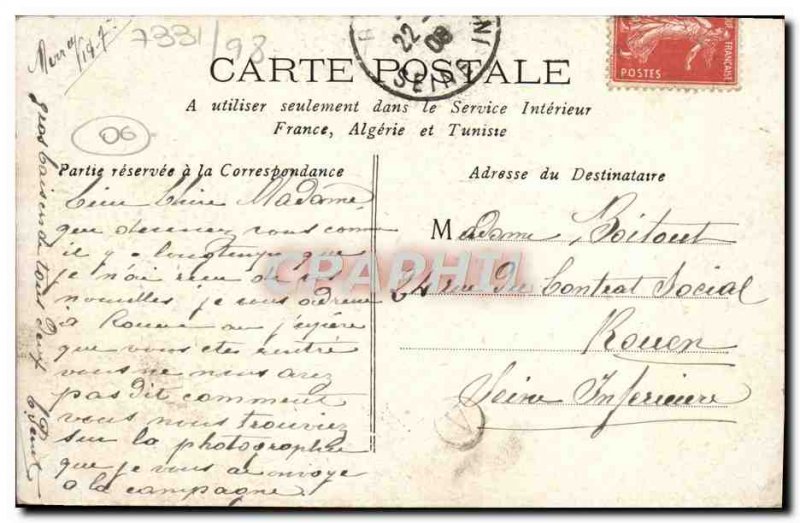 7331/98
06
22
08
SEINE
POSTES
FRANÇAISE
CARTE POSTALE
A utiliser seulement dans le Service Intérieur
France, Algérie et Tunisie
Partie réservée à la Correspondance
Adresse du Destinataire
bien Chère Madame
que devenez vous comme
il y a longtemps que
je n'ai reçu de vos
nouvelles je vous adresse
à Rouen
que vous etes rentré
vous ne nous avez
pas dit comment
vous nous trouviez
sur la photographie
que je vous ai envoyé
a la campagne
gros baisers de tous deux
Madame Boitout
24 rue du Contrat Social
Rouen
Seine Inferieure
CPAPHIL